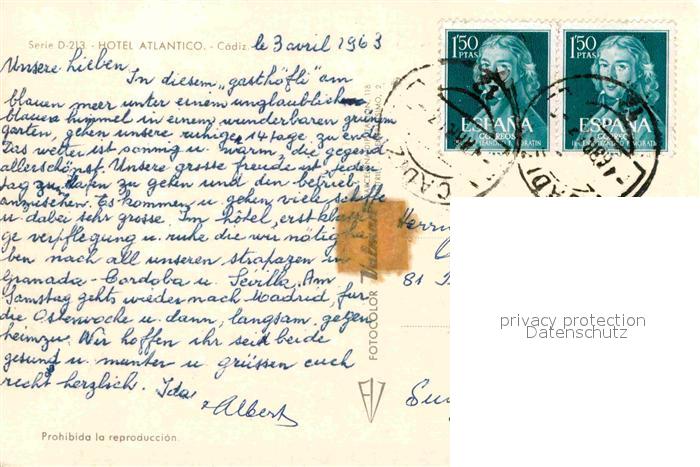 Serie D-213. - HOTEL ATLANTICO. - Cádiz.
le 3 avril 1963
Unsere Lieben
In diesem "gasthöfli" am
blauen meer unter einem unglaublich
blauen himmel in einem wunderbaren grünen
garten, gehen unsere ruhigen 14 tage zu ende
Das wetter ist sonnig u. warm, die gegend
allerschönst. Unsere grosse freude ist jeden
tag zu Hafen zu gehen und den betrieb
anzusehen. Es kommen u. gehen viele schiffe
u. dabei sehr grosse. Im hôtel, erstklassi
ge verpflegung u. ruhe die wir nötig ha
ben nach all unseren strapazen in
Granada - Cordoba u. Sevilla. Am
Samstag gehts wieder nach Madrid, für
die Osterwoche u. dann, langsam, gegen
heimzu. Wir hoffen ihr seid beide
gesund u. munter u. grüssen euch
recht herzlich. Ida
+ Albert
Prohibida la reproducción.
FOTOCOLOR Valman
1'50
PTAS
ESPAÑA
CORREOS
LEANDRO F. MORATIN
1'50
PTAS
ESPAÑA
CORREOS
LEANDRO F. MORATIN
CADIZ
CADIZ
Herrn
81
privacy protection
Datenschutz